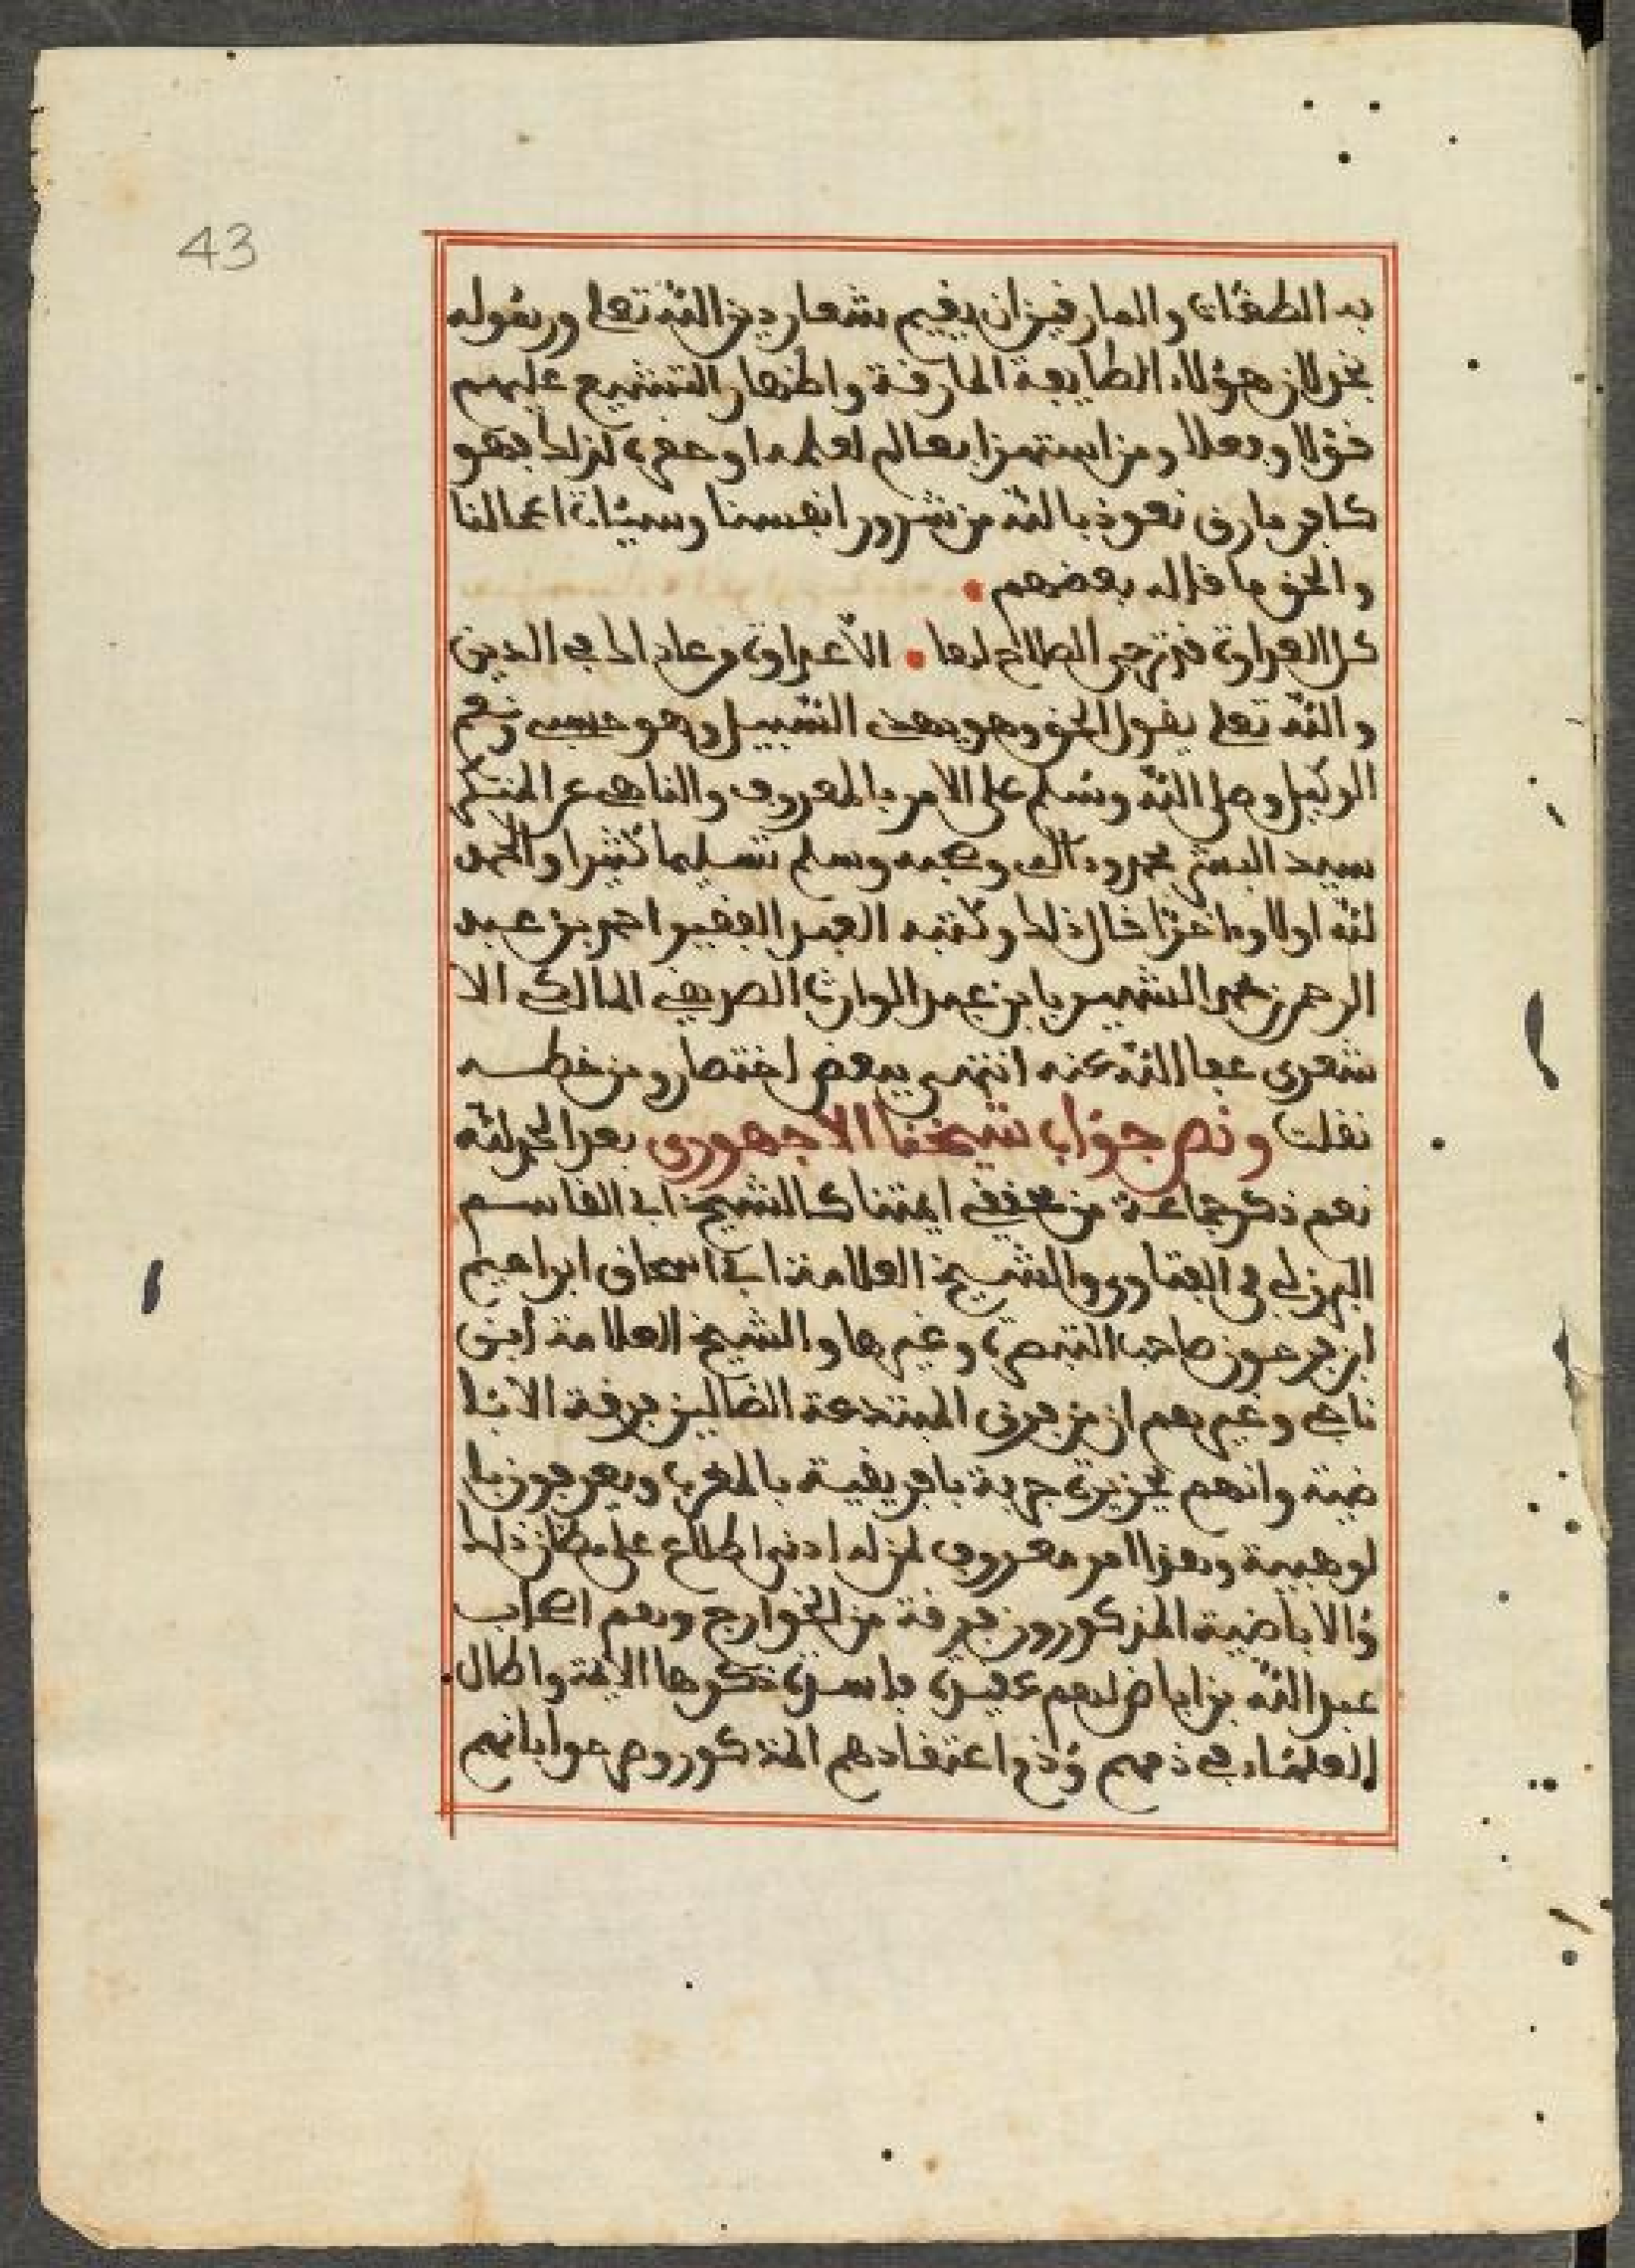 43
به الطغات والمارقين ان يقيم شعار دين الله تعلى ورسوله
بخذلان هؤلاء الطايفة المارقة واظهار التشنيع عليهم
قولا وفعلا ومن استهزا بعالم لعلمه او حقره كذلك فهو
كافر مارق نعوذ بالله من شرور انفسنا وسيئات اعمالنا
والحق ما قاله بعضهم
كل العداوة قد ترجى الصلاح لها الا عداوة من عاداك في الدين
والله تعلى يقول الحق وهو يهدى السبيل وهو حسبى ونعم
الوكيل وصلى الله وسلم على الامر بالمعروف والناهى عن المنكر
سيد البشر محمد وءاله وصحبه وسلم تسليما كثيرا والحمد
لله اولا وءاخرا قال ذلك وكتبه العبد الفقير احمد بن عبد
الرحمن بن عبد الوارث الصديقى المالكى الا
شعرى عفا الله عنه انتهى ببعض اختصار ومن خطه
نقلت ونص جواب شيخنا الاجهورى بعد الحمد لله
نعم ذكر جماعة من محققى ايمتنا كالشيخ ابى القاسم
البرزلى فى الفتاوى والشيخ العلامة ابى اسحاق ابراهيم
ابن فرحون صاحب التبصرة وغيرها والشيخ العلامة ابن
ناجى وغيرهم ان من فرق المبتدعة الضالين فرقة الابا
ضية وانهم بجزيرة جربة بافريقية بالمغرب ويعرفون با
لوهبية وهذا امر معروف لمن له ادنى اطلاع على مظان ذلك
والاباضية المذكورون فرقة من الخوارج وهم اصحاب
عبد الله بن اباض لهم عقيدة فاسدة ذكرها الايمة واطال
العلماء فى ذمهم وذم اعتقادهم المذكور وصرحوا بانهم